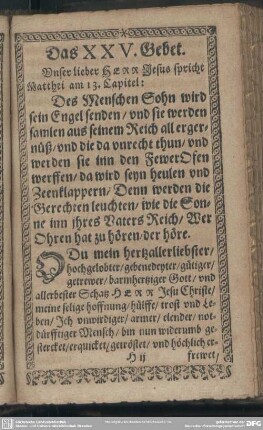 Das XXV. Gebet.
Vnser lieber HERR Jesus spricht
Matthei am 13. Capitel:
Des Menschen Sohn wird
sein Engel senden / vnd sie werden
samlen aus seinem Reich all erger-
nüß / vnd die da vnrecht thun / vnd
werden sie inn den FewerOfen
werffen / da wird seyn heulen vnd
Zeenklappern / Denn werden die
Gerechten leuchten / wie die Son-
ne inn jhres Vaters Reich / Wer
Ohren hat zu hören / der höre.
O Du mein hertzallerliebster /
hochgelobter / gebenedeyter / gütiger /
getrewer / barmhertziger Gott / vnd
allerbester Schatz HERR Jesu Christe /
meine selige hoffnung / hülffe / trost vnd Le-
ben / Ich vnwirdiger / armer / elender / not-
dürfftiger Mensch / bin nun widerumb ge-
stercket / erquicket / getröstet / vnd höchlich er-
H ij frewet /
DFG